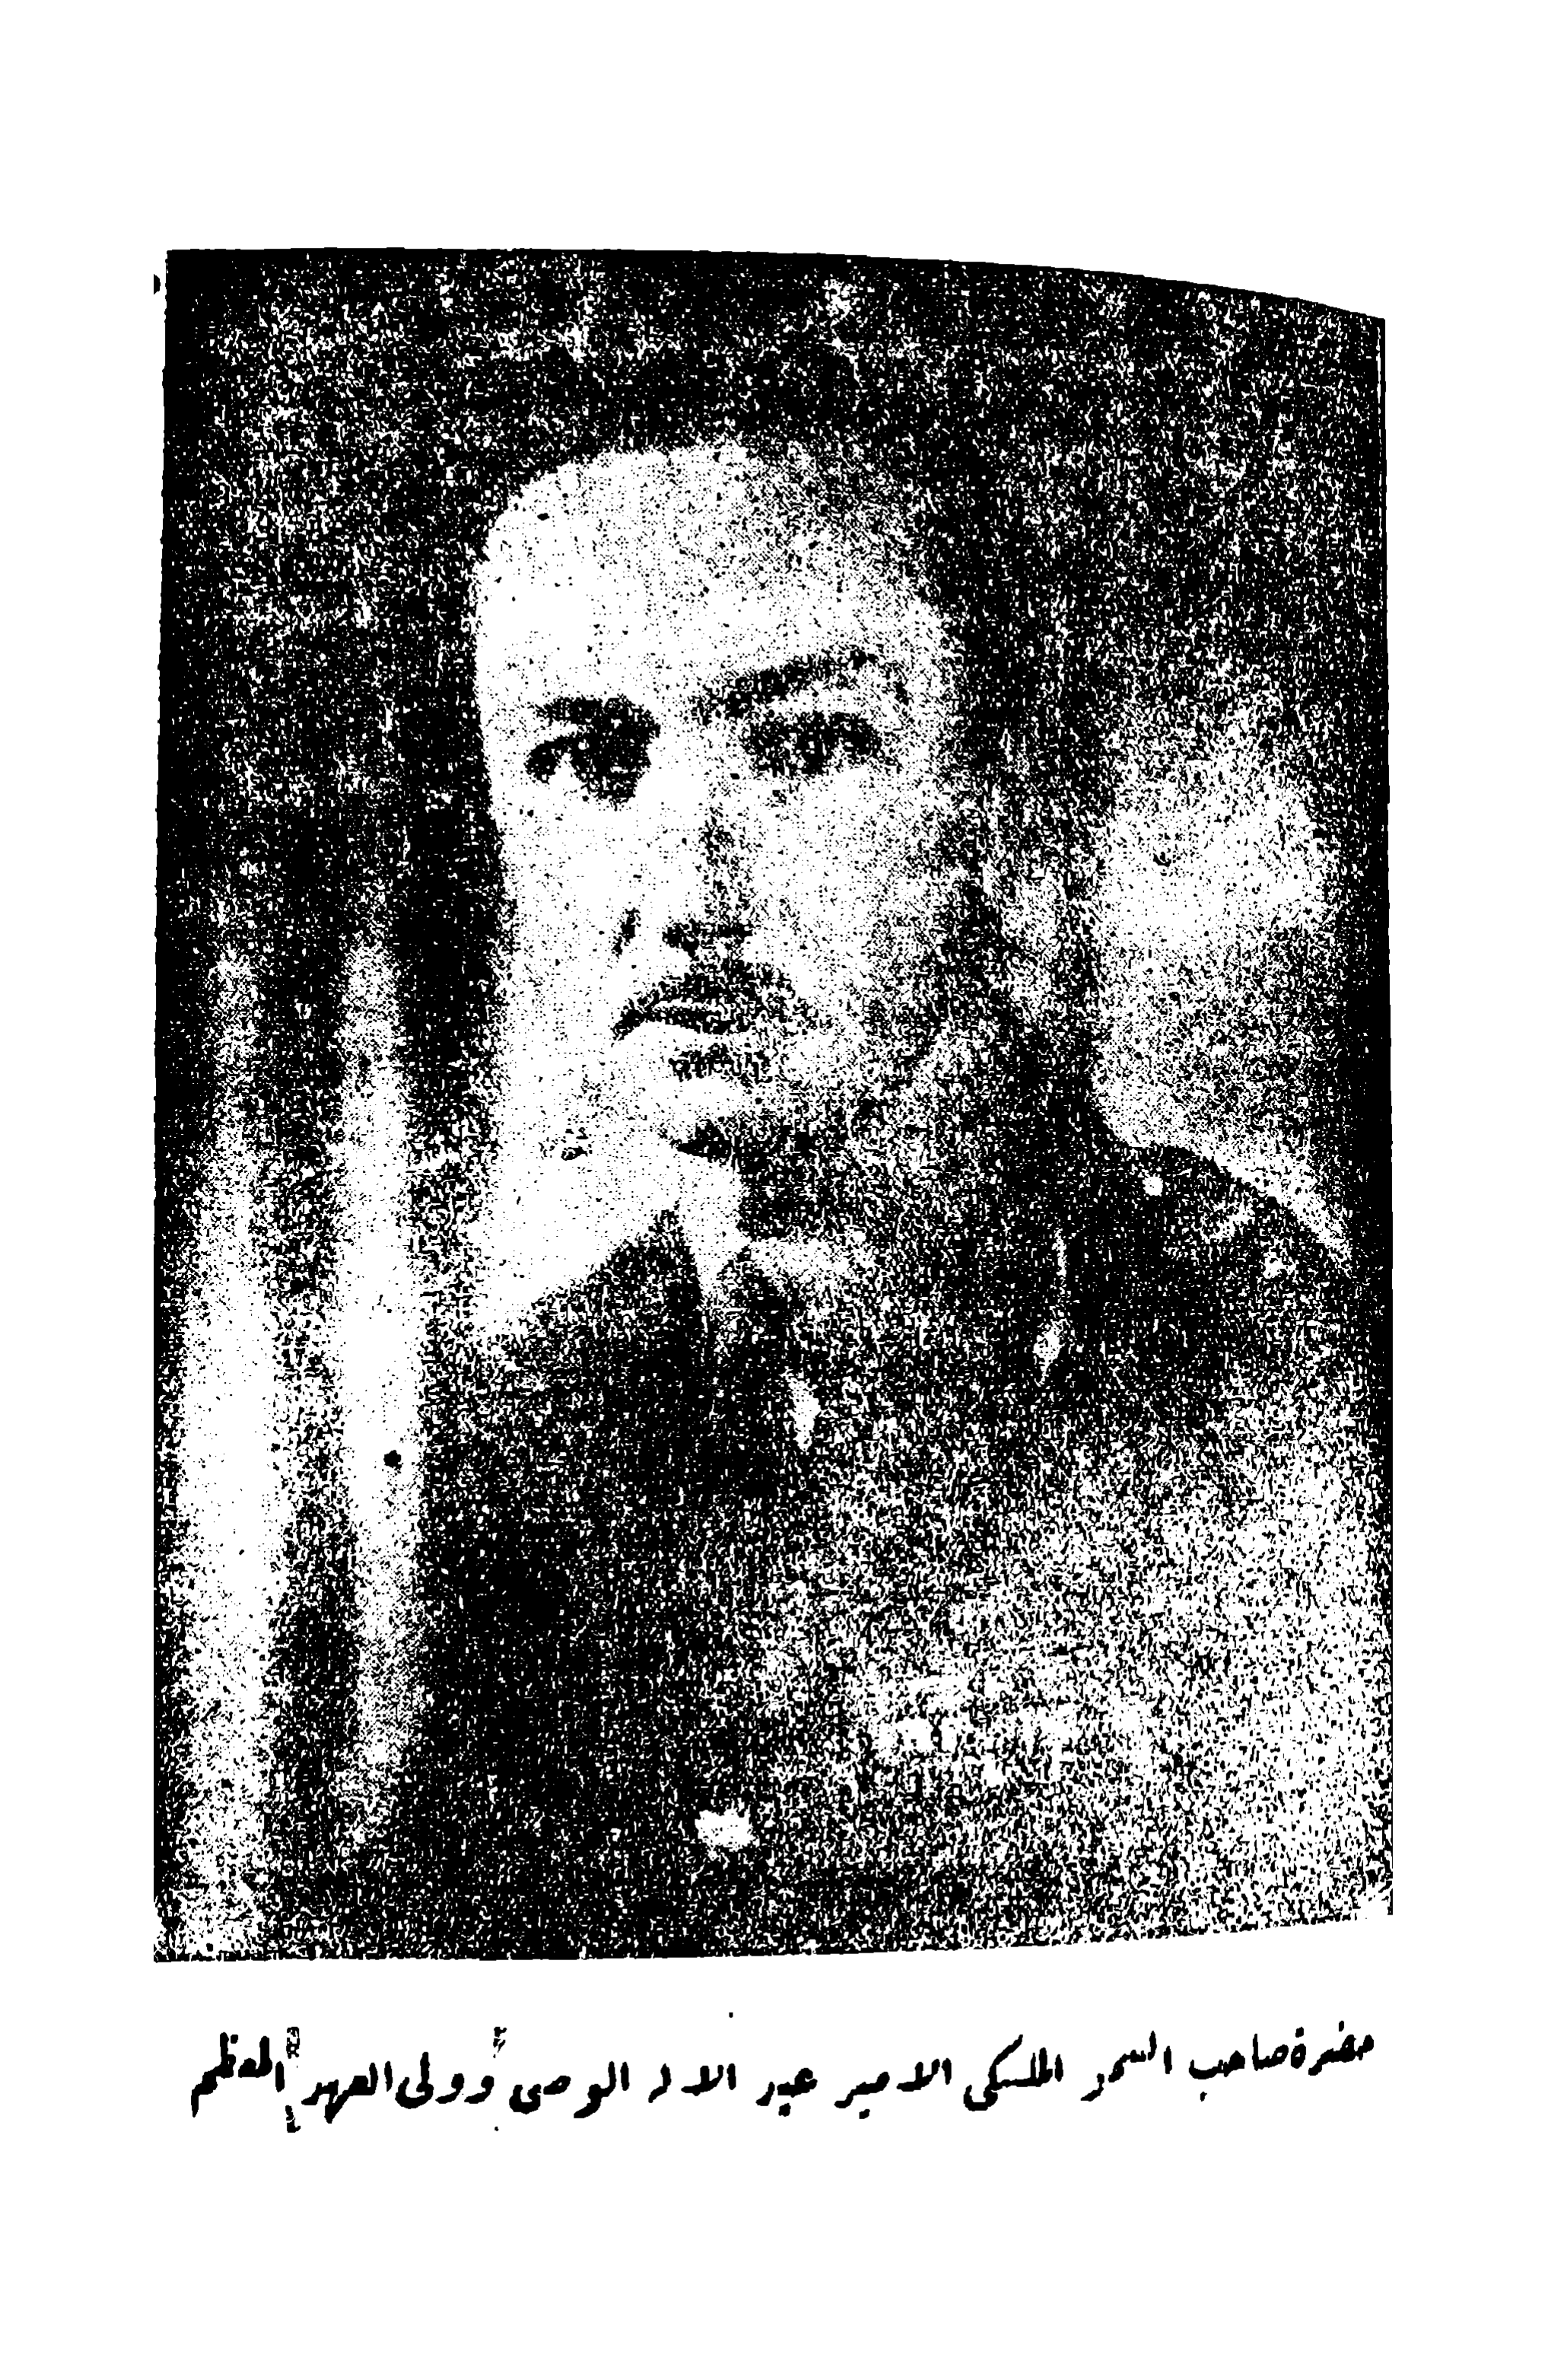 حضرة صاحب السمو الملكي الامير عبد الاله الوصى وولى العهد المعظم